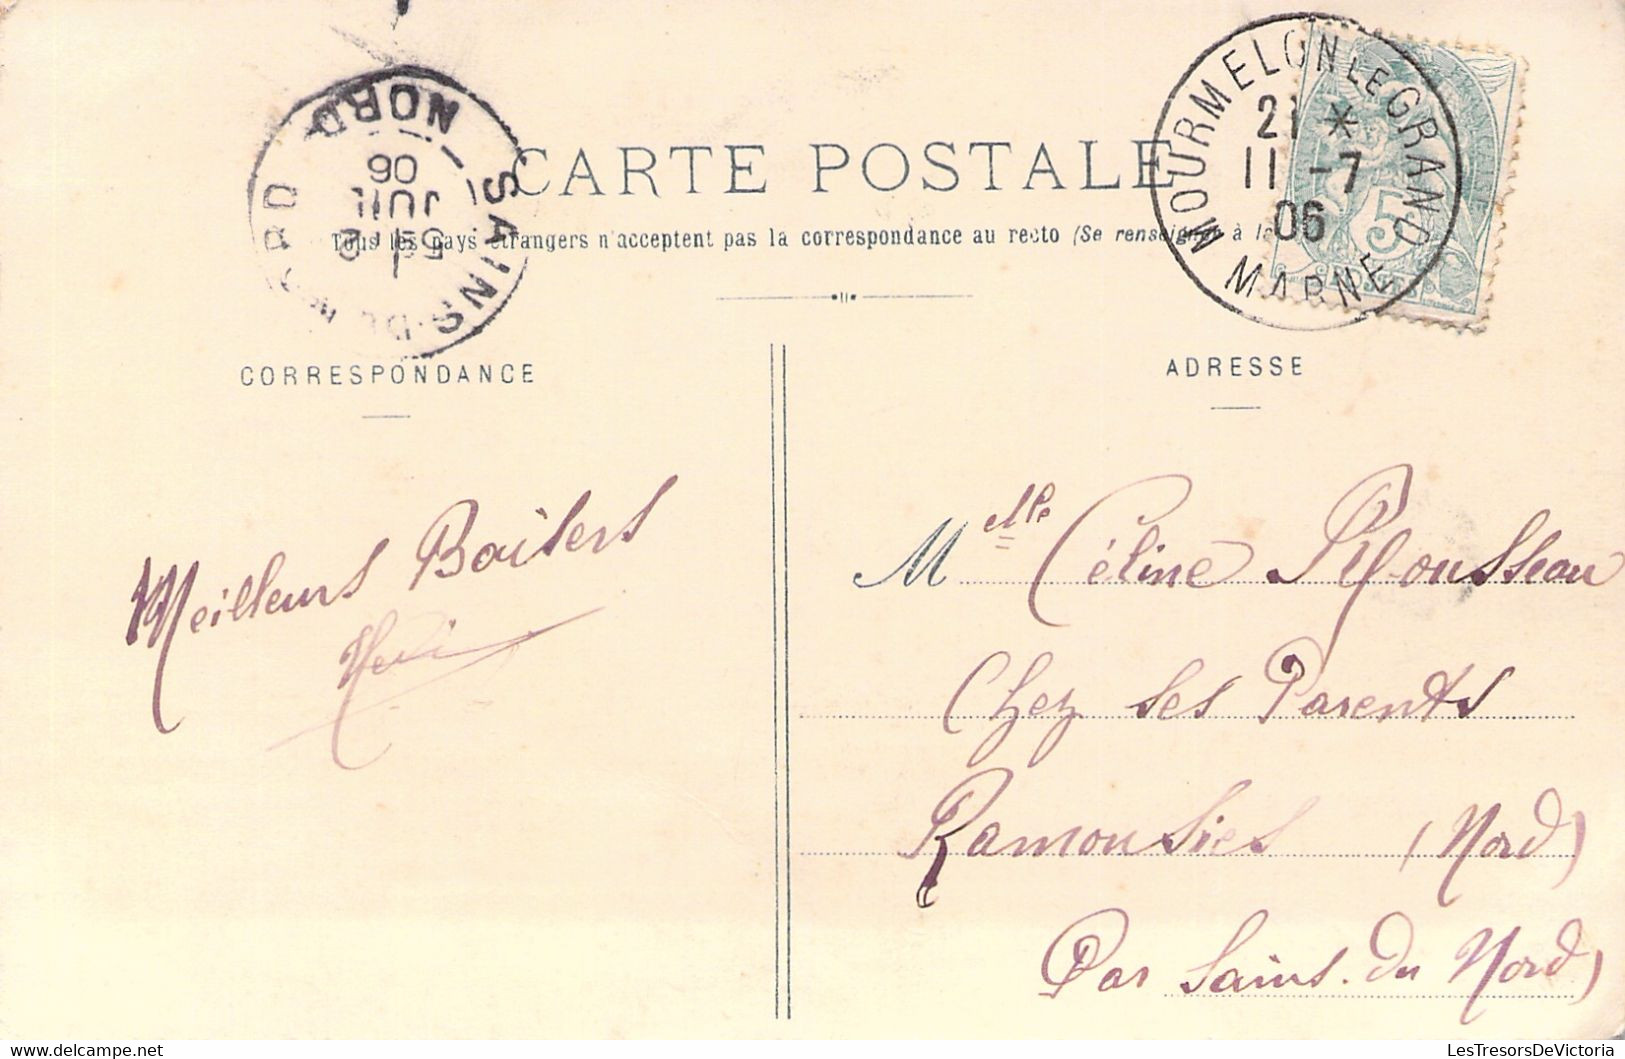 CARTE POSTALE
Tous les pays étrangers n'acceptent pas la correspondance au recto (Se renseigner à la
NOURMELON LE GRAND
21 *
11 -7
06
MARNE
5
NORD
06
JUIL
SAINS-DU-NORD
CORRESPONDANCE
ADRESSE
Meilleurs Baisers
Mlle Céline Rousseau
Chez ses Parents
Ramousies (Nord)
Par Sains. du Nord)
LesTresorsDeVictoria